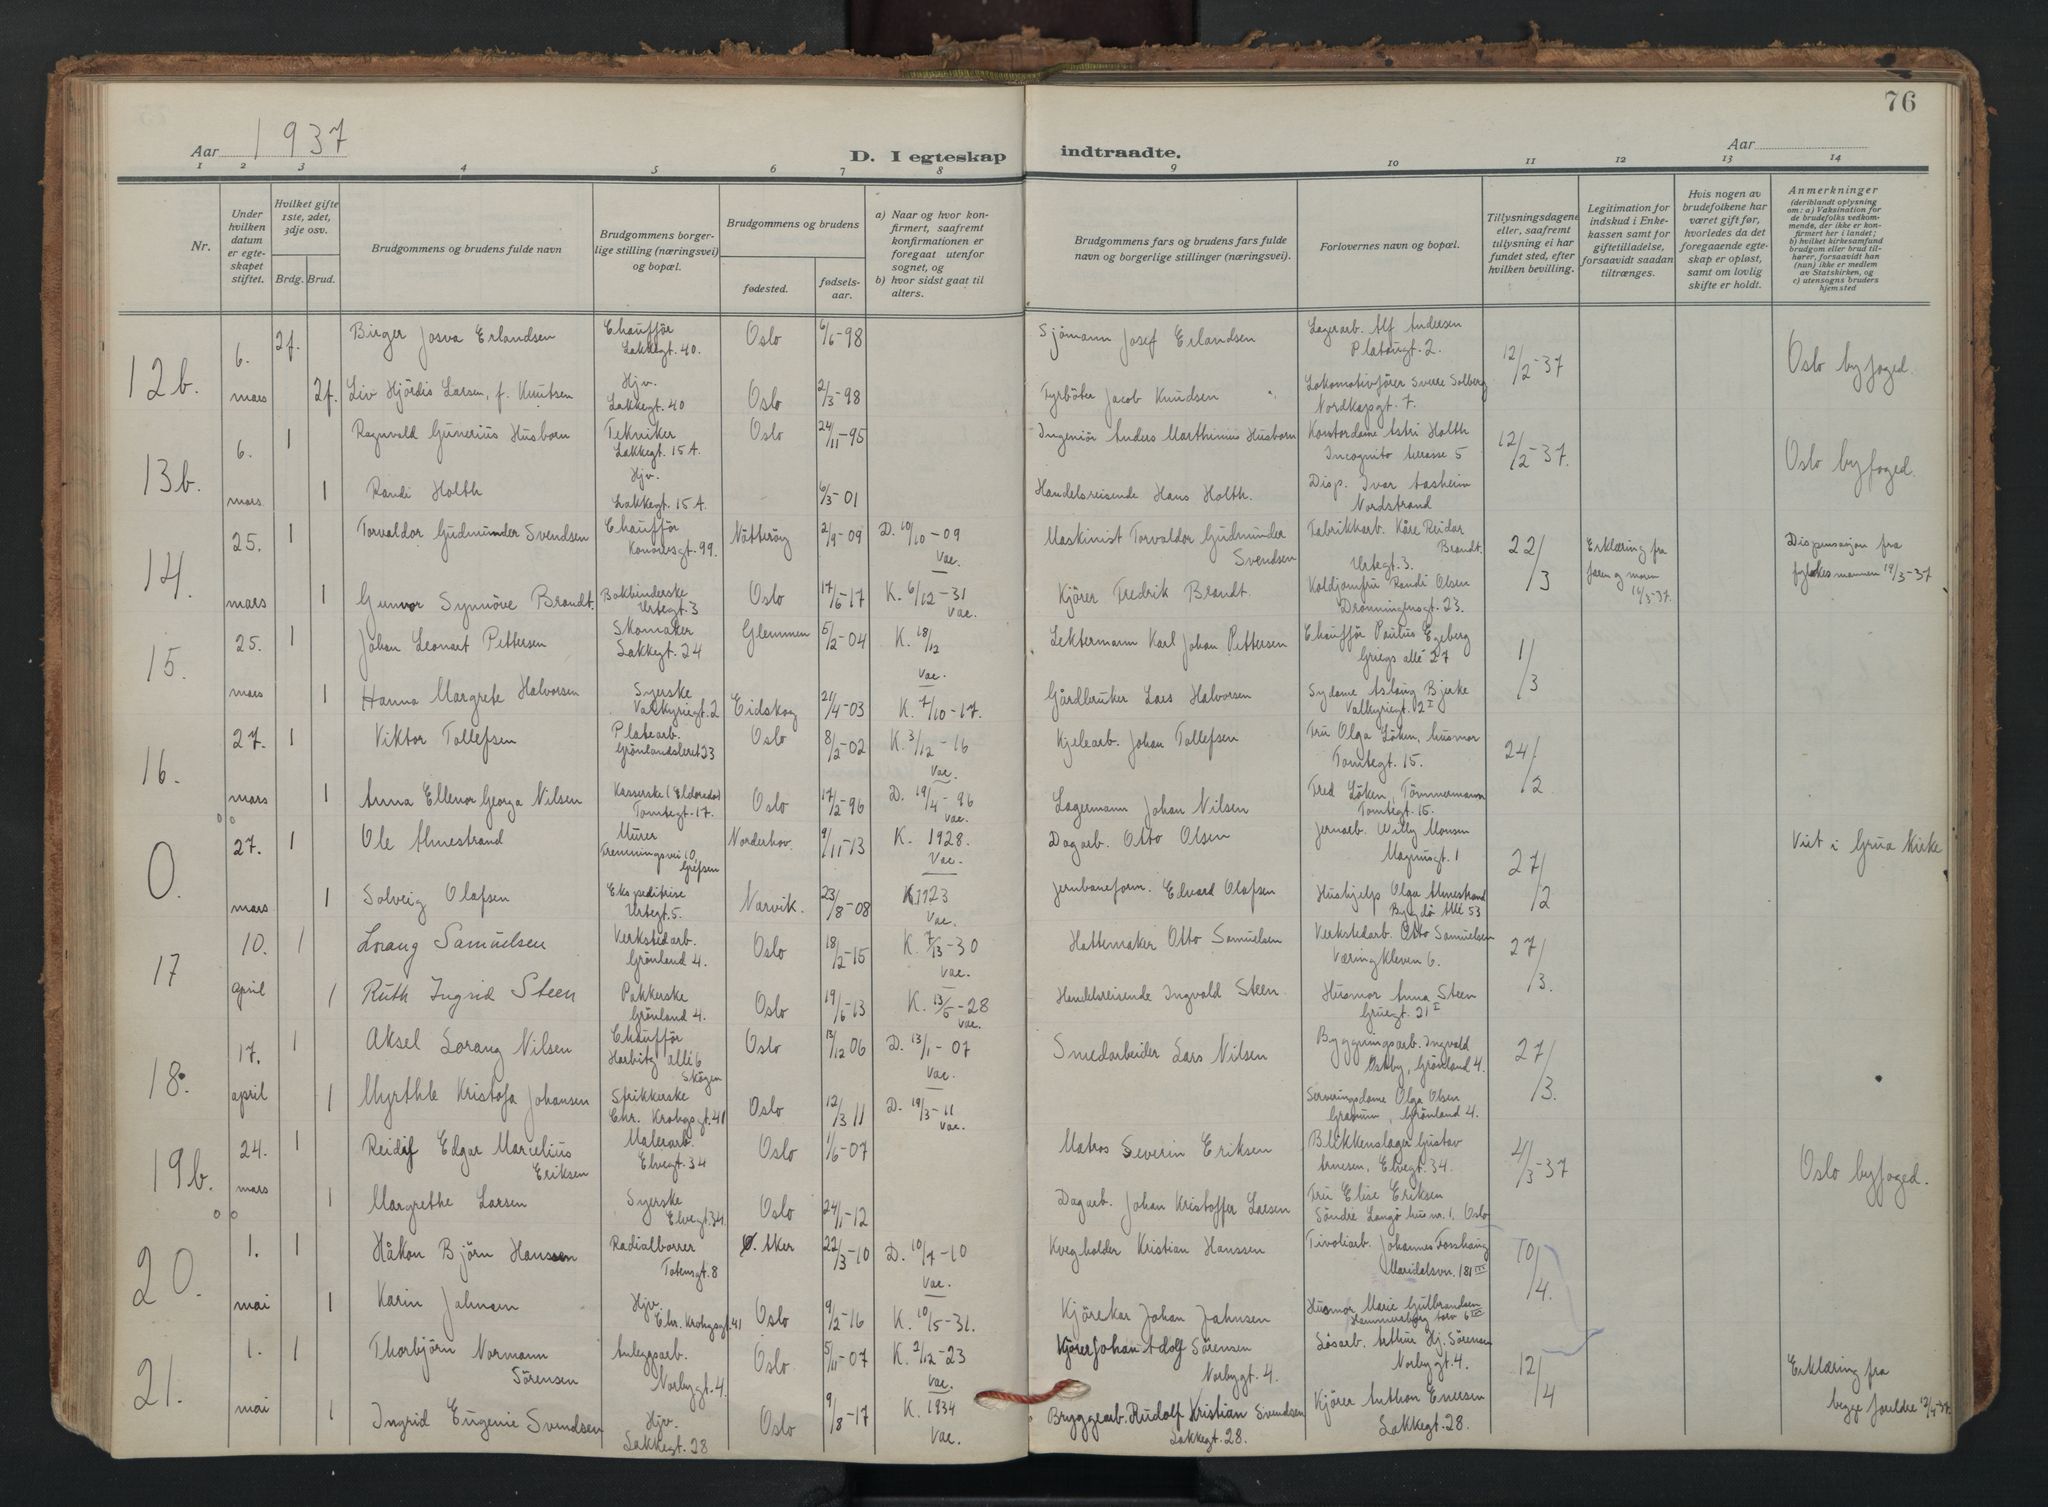 76
Aar 1937
D. I egteskap indtraadte.
Aar
1 2 3 4 5 6 7 8 9 10 11 12 13 14
Nr.
Under hvilken datum er egteskapet stiftet.
Hvilket gifte 1ste, 2det, 3dje osv.
Brdg. Brud.
Brudgommens og brudens fulde navn
Brudgommens borgerlige stilling (næringsvei) og bopæl.
Brudgommens og brudens
fødested.
fødselsaar.
a) Naar og hvor konfirmert, saafremt konfirmationen er foregaat utenfor sognet, og
b) hvor sidst gaat til alters.
Brudgommens fars og brudens fars fulde navn og borgerlige stillinger (næringsvei).
Forlovernes navn og bopæl.
Tillysningsdagene eller, saafremt tillysning ei har fundet sted, efter hvilken bevilling.
Legitimation for indskud i Enkekassen samt for giftetilladelse, forsaavidt saadan tiltrænges.
Hvis nogen av brudefolkene har været gift før, hvorledes da det foregaaende egteskap er opløst, samt om lovlig skifte er holdt.
Anmerkninger (deriblandt oplysning om: a) Vaksination for de brudefolks vedkommende, der ikke er konfirmert her i landet; b) hvilket kirkesamfund brudgom eller brud tilhører, forsaavidt han (hun) ikke er medlem av Statskirken, og c) utensogns bruders hjemsted
12b. 6. mars 2f. Birger Josva Erlandsen Chauffør Lakkegt. 40. Oslo 6/6-98 Sjömann Josef Erlandsen Lagerarb. Alf Andersen Platougt. 2. 12/2-37 Oslo byfoged.
2f. Liv Hjördis Larsen, f. Knutsen Hjv. Lakkegt. 40 Oslo 2/3-98 Fyrböter Jacob Knudsen Lokomotivförer Sverre Solberg Nordkapgt. 7.
13b. 6. mars 1 Ragnvald Gunerius Husborn Tekniker Lakkegt. 15 A. Oslo 24/11-95 Ingeniör Anders Marthinius Husborn Kontordame Astri Holth Incognito terrasse 5 12/2-37. Oslo byfoged.
1 Randi Holth Hjv. Lakkegt. 15 A. 6/3-01 Handelsreisende Hans Holth. Disp. Ivar Aasheim Nordstrand
14. 25. mars 1 Torvaldor Gudmunder Svendsen Chaufför Nötteröy 2/9-09 D. 10/10-09 Vac. Maskinist Torvaldor Gudmunder Svendsen Fabrikkarb. Kåre Reidar Brandt. Urtegt. 3. 22/3 Erklæring fra faren og moren 16/3-37. Dispensasjon fra fylkesmannen 19/3-37
1 Gunvor Synnöve Brandt. Bokbinderske Urtegt. 3 Oslo 17/6-17 K. 6/12-31 Vac. Kjörer Fredrik Brandt. Koldjomfru Randi Olsen Dronningensgt. 23.
15. 25. mars 1 Johan Leonart Pettersen Skomaker Lakkegt. 24 Glemmen 5/2-04 K. 18/12 Vac. Lektermann Karl Johan Pettersen Chauffør Paulus Egeberg Griegs allé 27 1/3
1 Hanna Margrete Halvorsen Syerske Valkyriegt. 2 Eidskog 21/4-03 K. 7/10-17. Gårdbruker Lars Halvorsen Sydame Aslaug Bjerke Valkyriegt. 2 I
16. 27. mars 1 Viktor Tollefsen Platearb. Grönlandsleret 23 Oslo 8/2-02 K. 3/12-16 Vac. Kjelearb. Johan Tollefsen Fru Olga Löken, husmor Tomtegt. 15. 24/2
1 Anna Ellenor Georga Nilsen Kasserske (Eldorado) Tomtegt. 17. Oslo 17/2-96 D. 19/4-96 Vac. Lagermann Johan Nilsen Fred Löken, Tömmermann Tomtegt. 15.
0. 27. mars 1 Ole Almestrand Murer Grefsen Norderhov. 9/11-13 K. 1928. Vac. Dagarb. Otto Olsen Jernarb. Willy Monsen Magnusgt. 1 27/2 Viet i Grua kirke
1 Solveig Olafsen Ekspeditrise Urtegt. 5. Narvik. 23/8-08 K 1923 Vac. Jernbaneform. Edvard Olafsen Hushjelp Olga Almestrand Bygdö Allé 53
17 10. april 1 Lorang Samuelsen Verkstedarb. Grönland 4. Oslo 18/2-15 K. 7/3-30 Vac. Hattemaker Otto Samuelsen Verkstedarb. Otto Samuelsen Væringkleven 6. 27/3.
1 Ruth Ingrid Steen Pakkerske Grönland 4. Oslo 19/6-13 K. 13/5-28 Vac. Handelsreisende Ingvald Steen. Husmor Anna Steen 21 I
18. 17. april 1 Aksel Lorang Nilsen Chauffør Harbitz allé 6 Skögen Oslo 13/12 06 D. 13/1-07 Vac. Smedarbeider Lars Nilsen Bygningsarb. Ingvald Ostby, Grönland 4. 27/3.
1 Myrthle Kristofa Johansen Strikkerske Chr. Krohgsgt. 41 Oslo 12/3 11 D. 19/3-11 Vac. Serveringsdame Olga Olsen Grönland 4.
19b. 24. mars 1 Reidaf Edgar Marcelius Eriksen Malerarb. Elvegt. 34 Oslo 1/6-07 Matros Severin Eriksen Blikkenslager Gustav Arnesen, Elvegt. 34. 4/3-37 Oslo byfoged.
1 Margrethe Larsen Syerske Elvegt. 34. Oslo 24/1-12 Dagarb. Johan Kristoffer Larsen Fru Elise Eriksen Söndre Langö hus nr. 1. Oslo
20. 1. mai 1 Håkon Björn Hanssen Radialborrer Totensgt. 8 Ø. Aker 22/3-10 D. 10/7-10 Vac. Kvegholder Kristian Hanssen Tivoliarb. Johannes Fosshaug Maridalsvn. 181 III 10/4.
1 Karin Jahnsen Hjv. Chr. Krohgsgt. 41 Oslo 9/2-16 K. 10/5-31. Kjörekar Johan Jahnsen Husmor Marie Gulbrandsen Hammersborg torv 6 III
21. 1. mai 1 Thorbjörn Normann Sörensen Anleggsarb. Norbygt. 4. Oslo. 5/11-07 K. 2/12-23 Vac. Kjörer Johan Adolf Sörensen Norbygt. 4. Lösarb. Arthur Hj. Sörensen Norbygt. 4. 12/4 Erklæring fra begge foreldre 12/4-37.
1 Ingrid Eugenie Svendsen Hjv. Lakkegt. 28 Oslo 9/8-17 K. 1934 Vac. Bryggearb. Rudolf Kristian Svendsen Lakkegt. 28. Kjörer Anthon Enersen Lakkegt. 28.